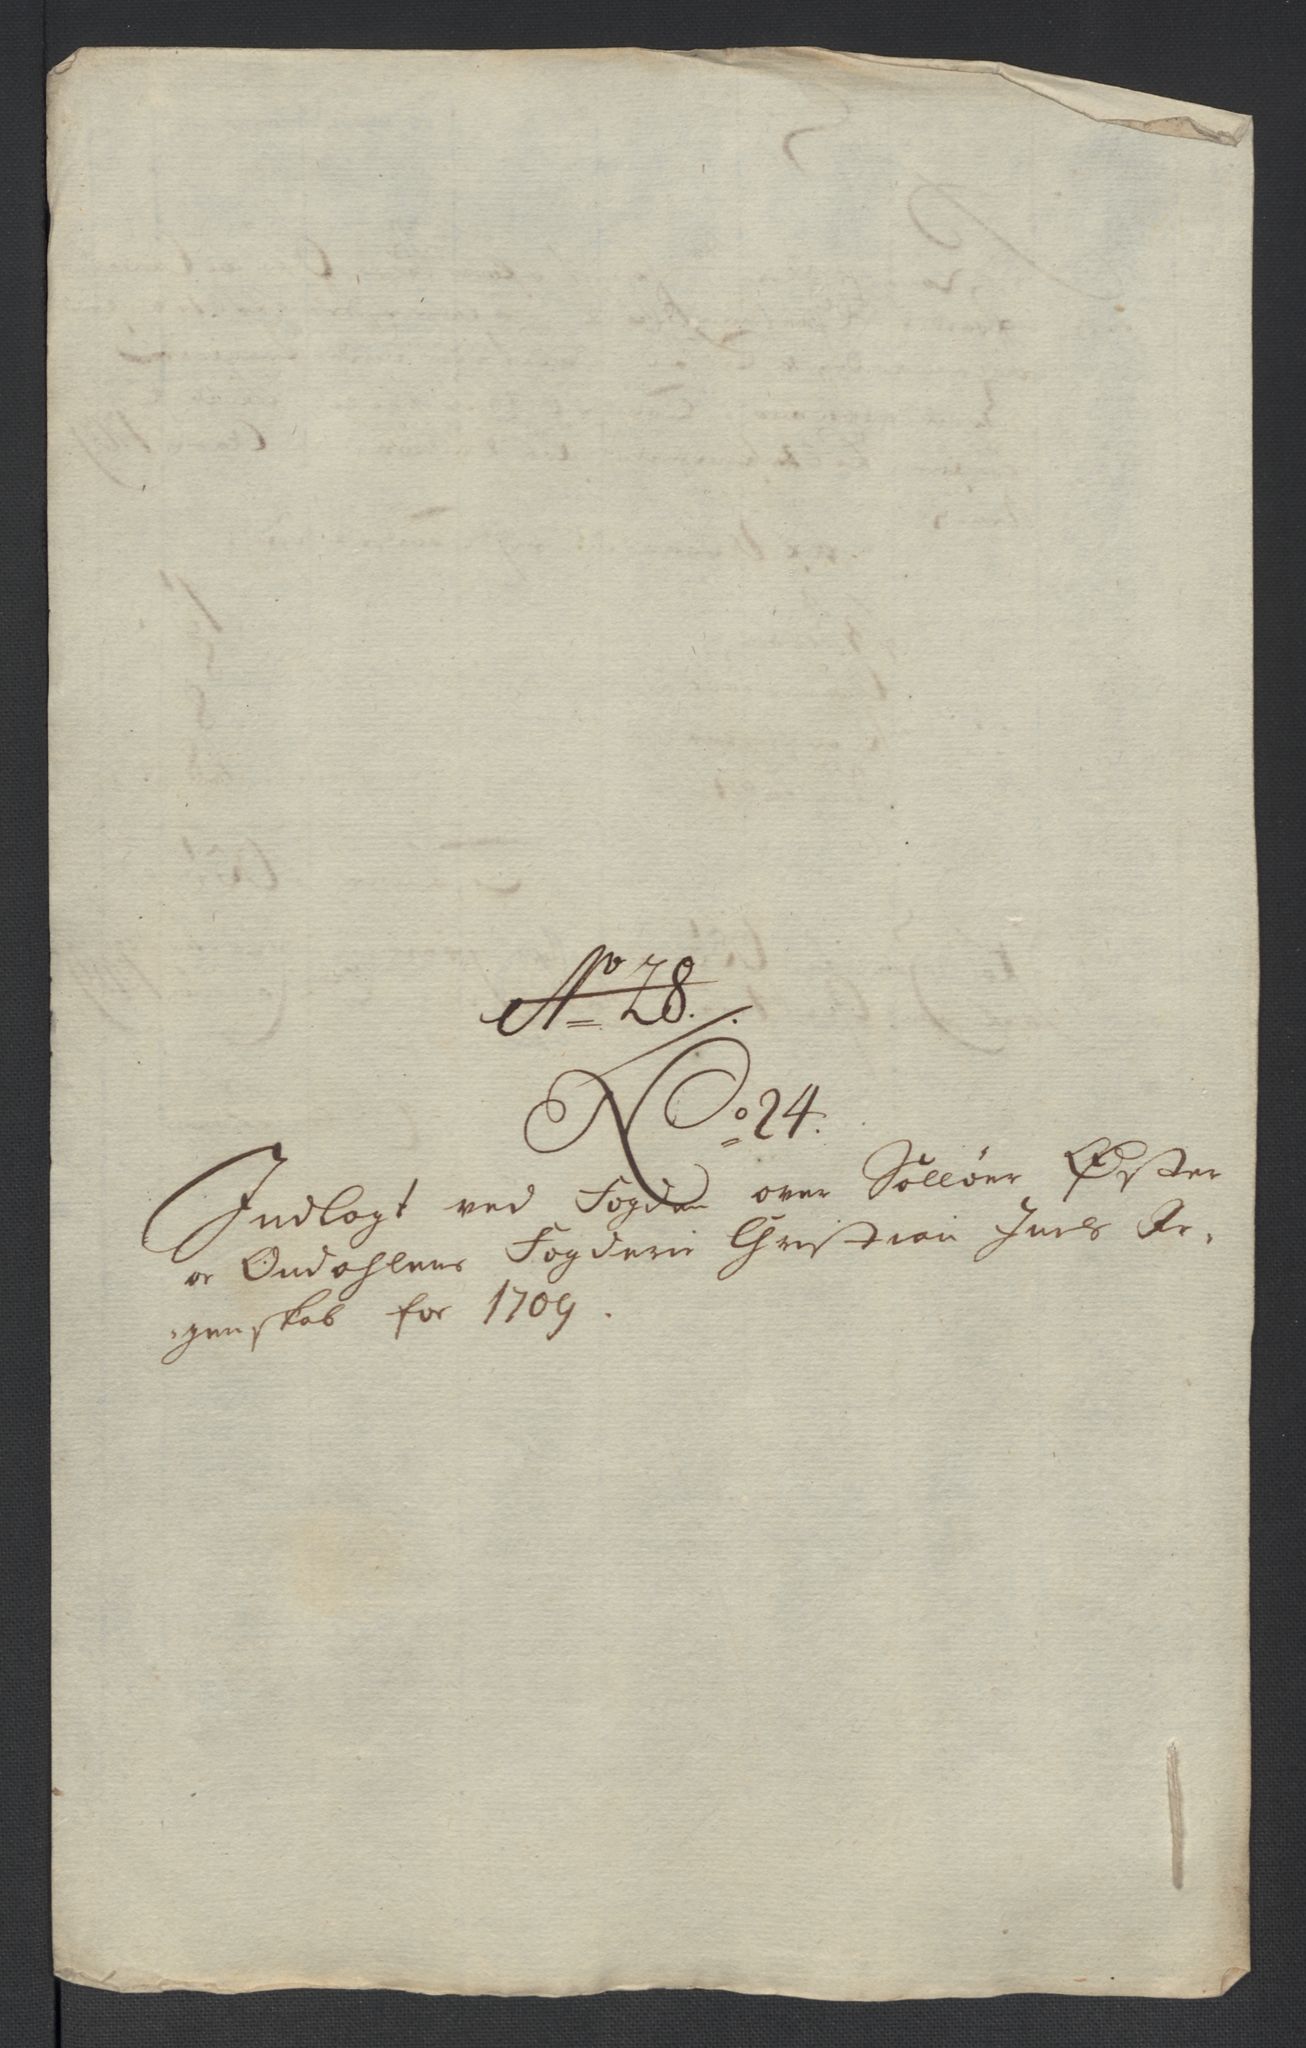 No 28.
No 24.
Indlagt ved Fogden over Solløer Øster
oc Oudahlens Fogderie Christian Juels Re-
genskab for 1709.